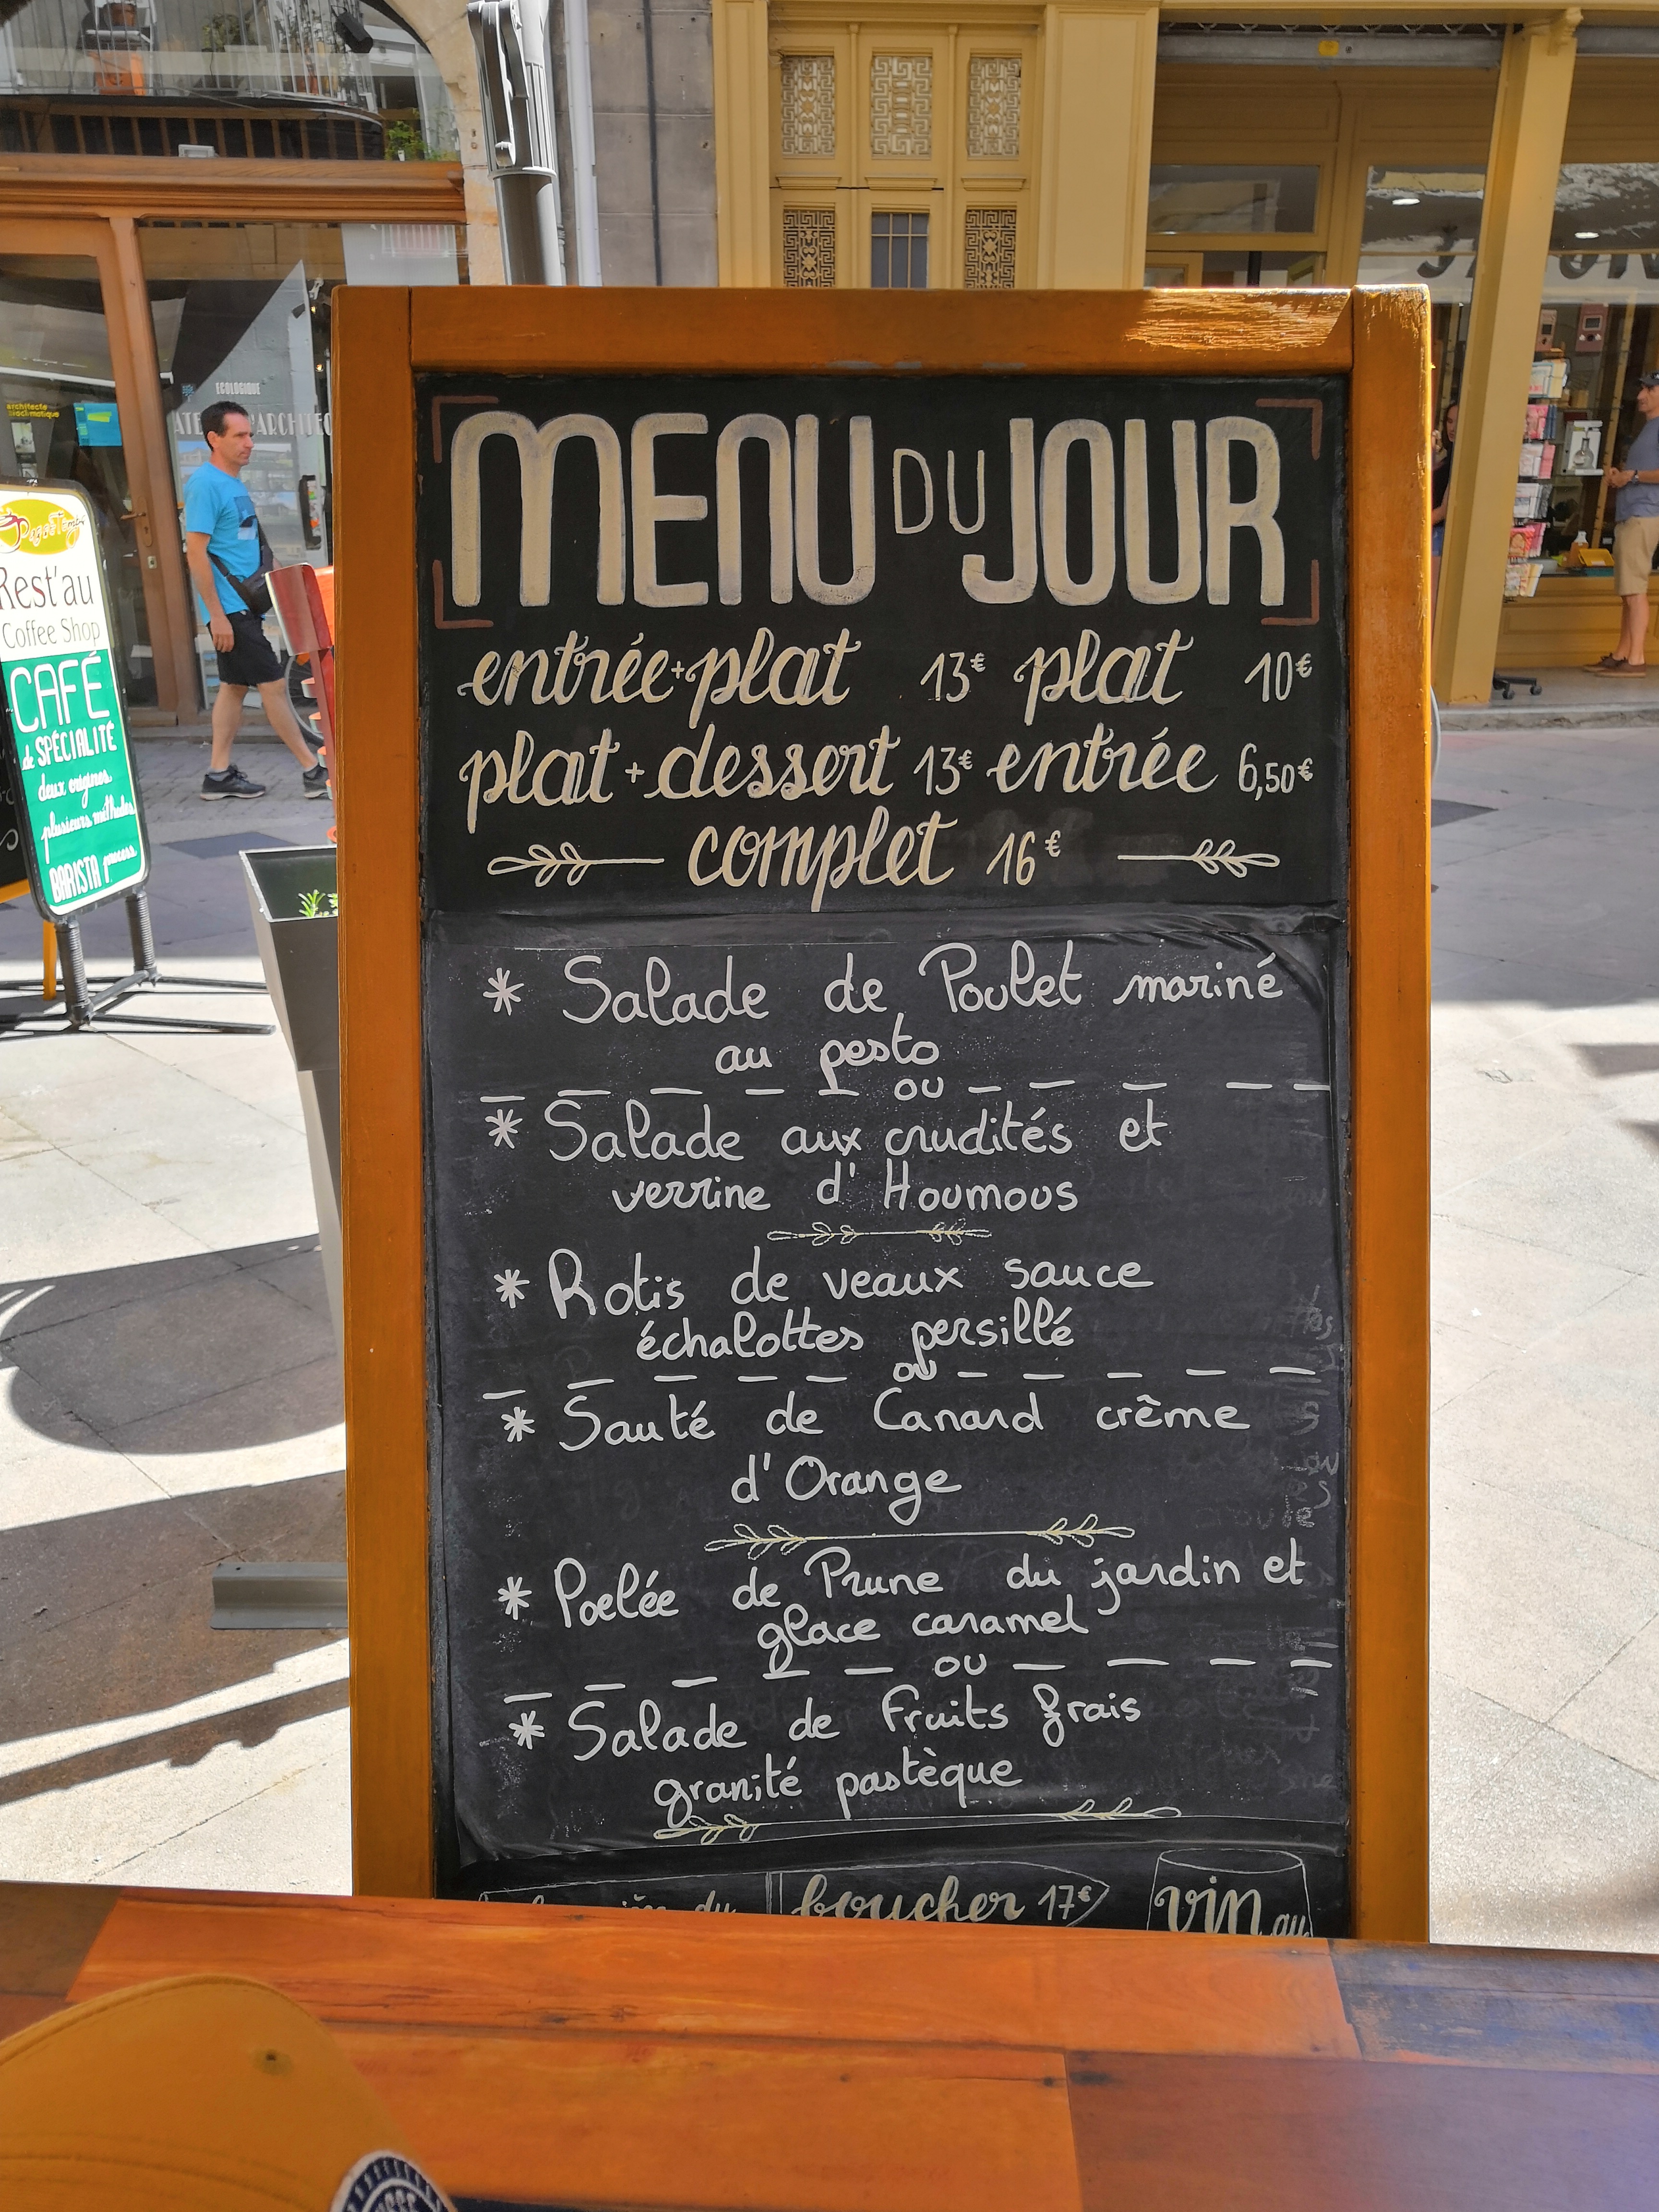 MENU DU JOUR
entrée+plat 13€ plat 10€
plat+dessert 13€ entrée 6,50€
complet 16€
* Salade de Poulet mariné
au pesto
ou
* Salade aux crudités et
verrine d'Houmous
* Rotis de veaux sauce
échalottes persillé
ou
* Sauté de Canard crême
d'Orange
* Poelée de Prune du jardin et
glace caramel
ou
* Salade de Fruits frais
granité pastèque
du boucher 17€ vin au
Rest'au
Coffee Shop
CAFÉ
de SPÉCIALITÉ
deux origines
plusieurs méthodes
BARISTA process
ECOLOGIQUE
architecte